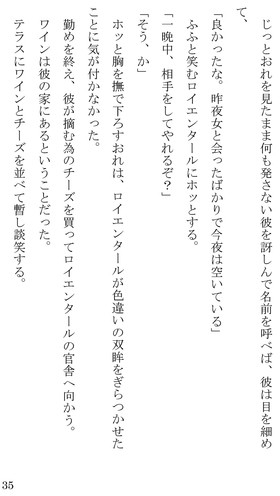 じっとおれを見たまま何も発さない彼を訝しんで名前を呼べば、彼は目を細め
て、
「良かったな。昨夜女と会ったばかりで今夜は空いている」
ふふと笑むロイエンタールにホッとする。
「一晩中、相手をしてやれるぞ？」
「そう、か」
ホッと胸を撫で下ろすおれは、ロイエンタールが色違いの双眸をぎらつかせた
ことに気が付かなかった。
勤めを終え、彼が摘む為のチーズを買ってロイエンタールの官舎へ向かう。
ワインは彼の家にあるということだった。
テラスにワインとチーズを並べて暫し談笑する。
35